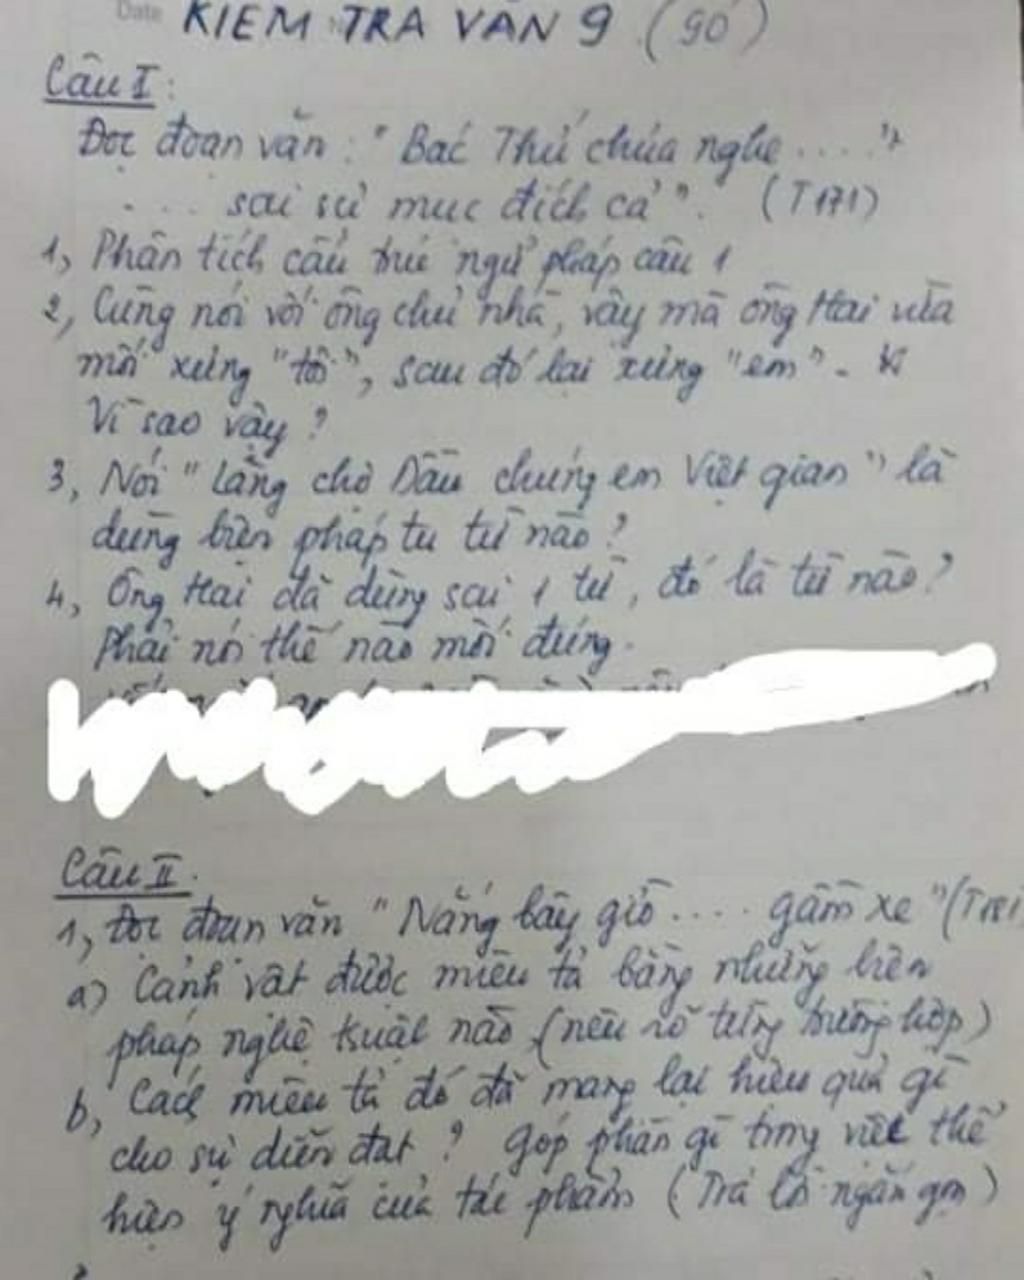 Date KIỂM TRA VĂN 9 (90')
Câu I:
Đọc đoạn văn: "Bác Thứ chúa nghe ....
.... sai sự mục đích cả". (T171)
1, Phân tích cấu trúc ngữ pháp câu 1
2, Cùng nói với ông chủ nhà, vậy mà ông Hai vừa
mới xưng "tôi", sau đó lại xưng "em" -
Vì sao vậy?
3, Nói "Làng chợ Dầu chúng em Việt gian" là
dùng biện pháp tu từ nào?
4, Ông Hai đã dùng sai 1 từ, đó là từ nào?
Phải nói thế nào mới đúng.
Câu II.
1, Đọc đoạn văn "Nắng bây giờ .... gầm xe"
a) Cảnh vật được miêu tả bằng những biện
pháp nghệ thuật nào (nêu rõ từng trường hợp)
b, Cách miêu tả đó đã mang lại hiệu quả gì
cho sự diễn đạt? Góp phần gì trong việc thể
hiện ý nghĩa của tác phẩm (Trả lời ngắn gọn)